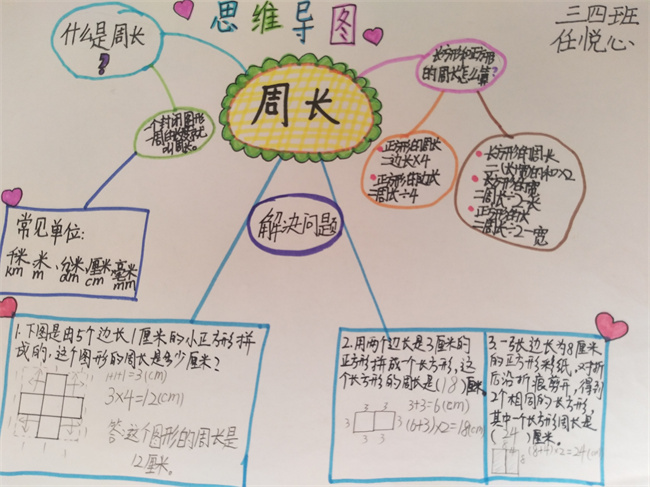 思维导图
三四班
任悦心
什么是周长
?
周长
长方形和正方形
的周长怎么算?
一个封闭图形
一周的长度就
叫周长。
正方形的周长
=边长×4
正方形的边长
=周长÷4
长方形的周长
=(长+宽的和)×2
长方形的宽
=周长÷2-长
=周长÷2-宽
常见单位:
千米、米、分米、厘米、毫米
km m dm cm mm
解决问题
1.下图是由5个边长1厘米的小正方形拼
成的,这个图形的周长是多少厘米?
1+1+1=3(cm)
3×4=12(cm)
答:这个图形的周长是
12厘米。
2.用两个边长是3厘米的
正方形拼成一个长方形,这
个长方形的周长是(18)厘米。
3+3=6(cm)
(6+3)×2=18(cm)
3 3
3 3
3 3
3.一张边长为8厘米
的正方形彩纸,对折
后沿折痕剪开,得到
2个相同的长方形,
其中一个长方形周长是
(24)厘米。
(8+4)×2=24(cm)